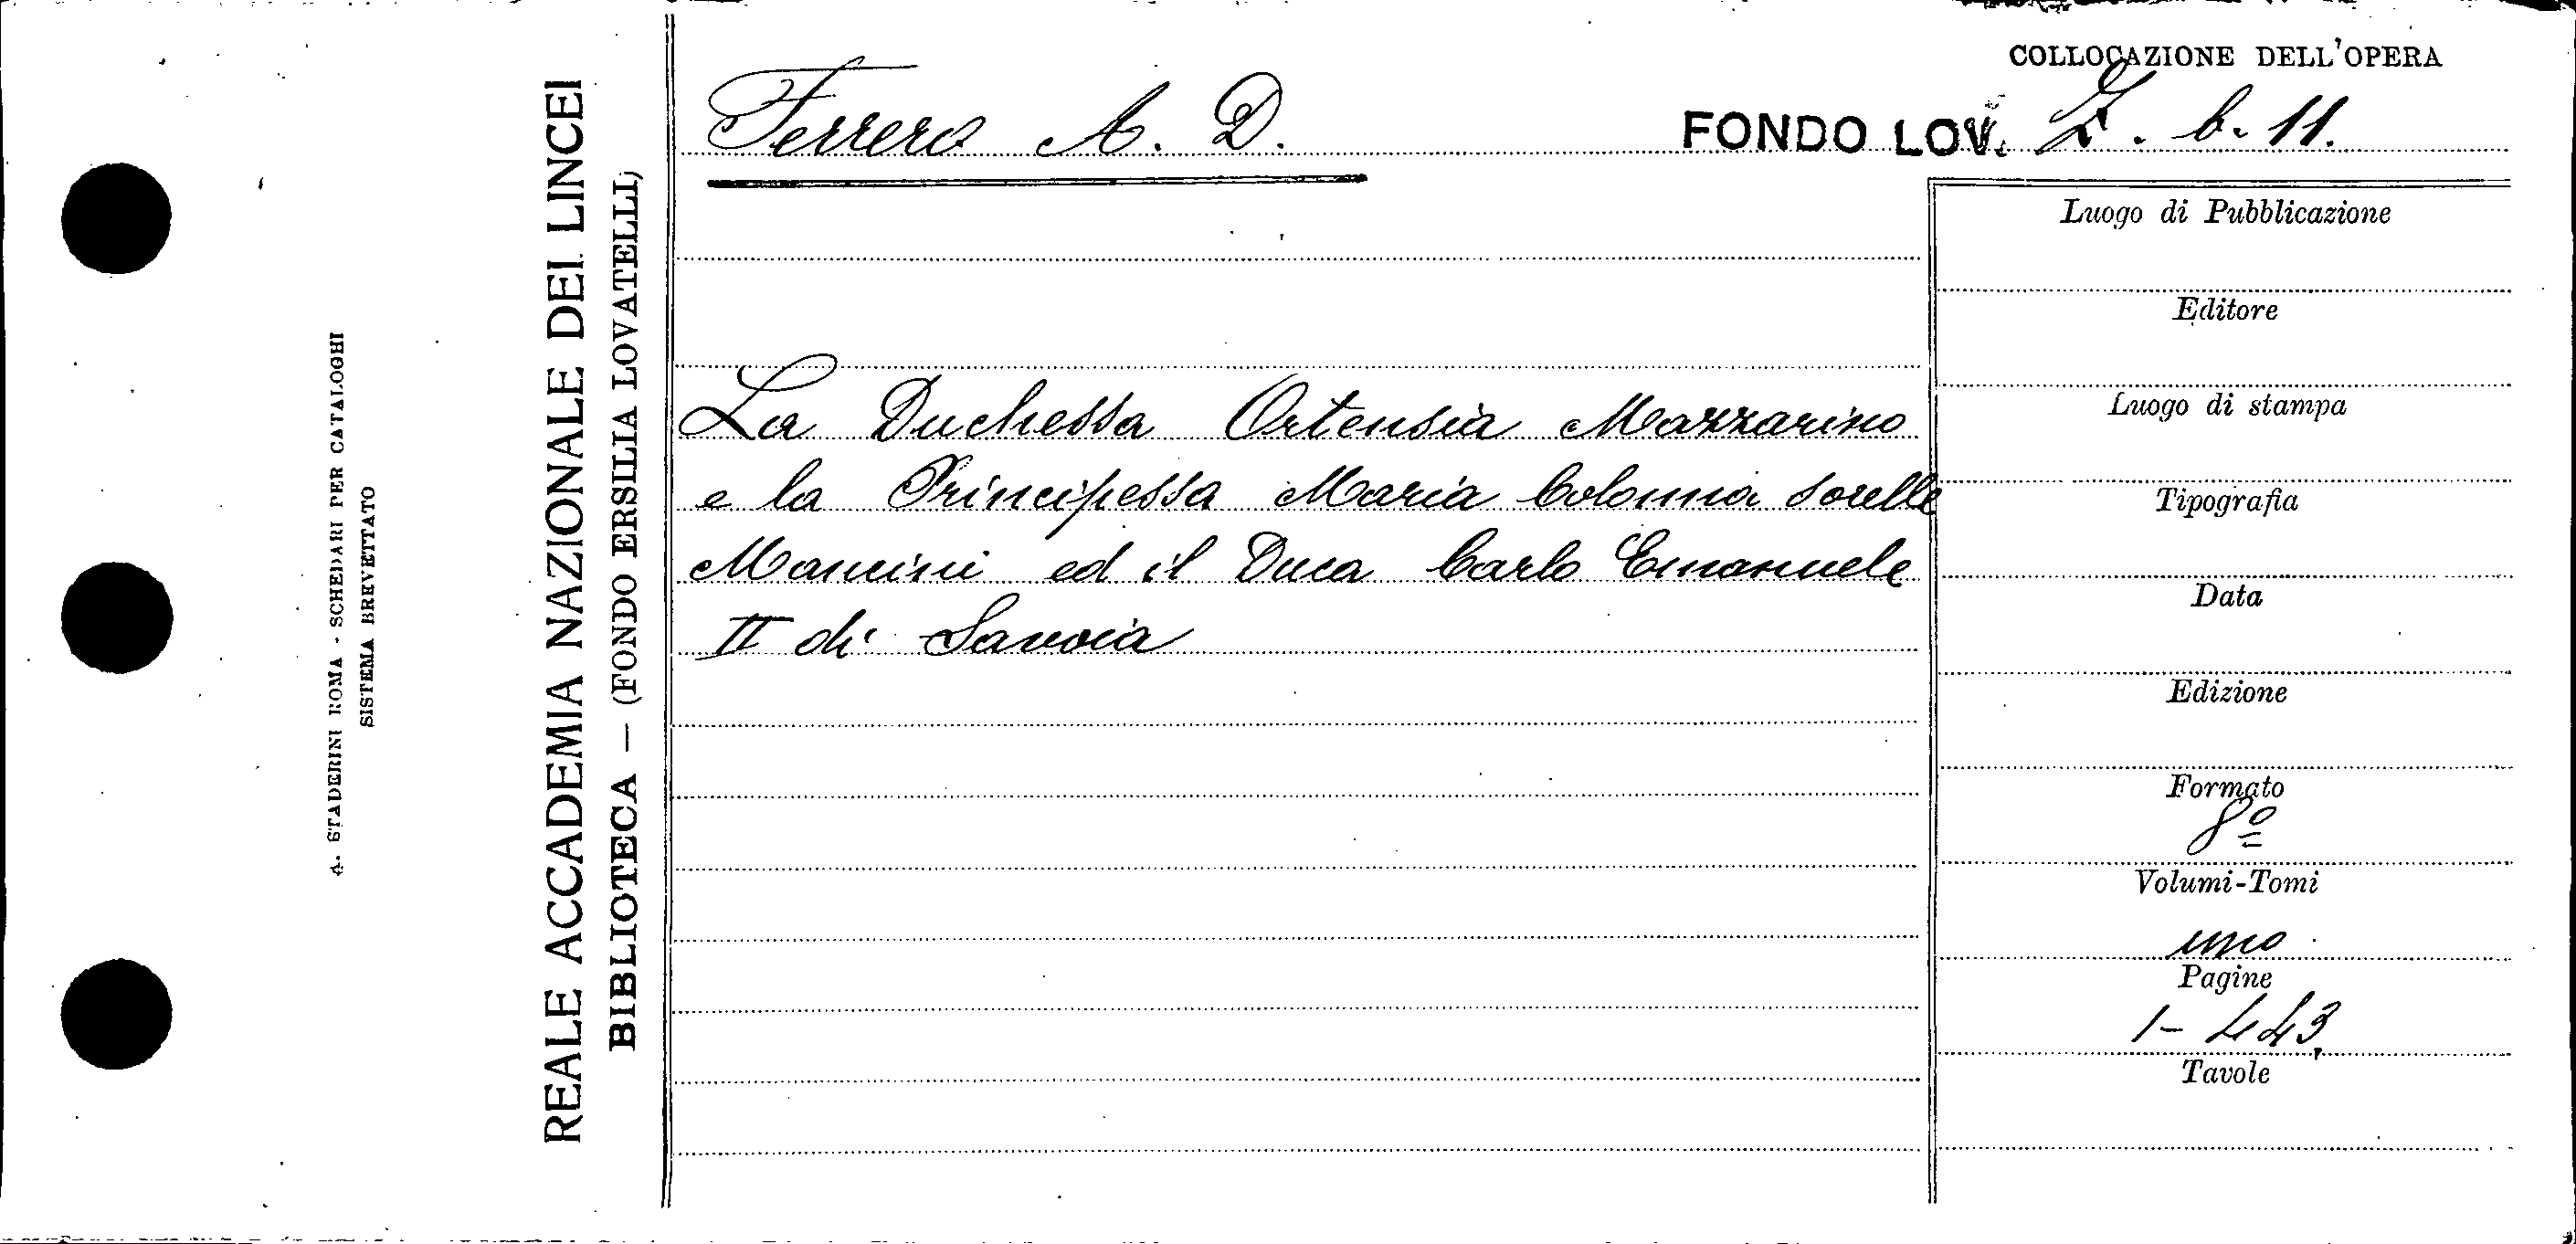 A. STADERINI ROMA - SCHEDARI PER CATALOGHI
SISTEMA BREVETTATO
REALE ACCADEMIA NAZIONALE DEI LINCEI
BIBLIOTECA — (FONDO ERSILIA LOVATELLI)
COLLOCAZIONE DELL'OPERA
Ferrero A. D.
FONDO LOV. Z. b. 11.
La Duchessa Ortensia Mazzarino
e la Principessa Maria Colonna sorelle
Mancini ed il Duca Carlo Emanuele
II di Savoia
Luogo di Pubblicazione
Editore
Luogo di stampa
Tipografia
Data
Edizione
Formato
8º
Volumi-Tomi
uno
Pagine
1-443
Tavole